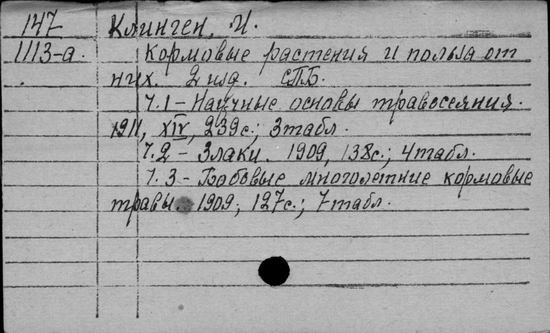 147 Клинген, И.
1113-а. Кормовые растения и польза от
них. 2 изд. СПБ.
Ч.1 - Научные основы травосеяния.
1911, XIV, 239с.; 3 табл.
Ч.2 - Злаки. 1909, 138с.; 4 табл.
Ч.3 - Бобовые многолетние кормовые
травы. 1909; 127с.; 7 табл.